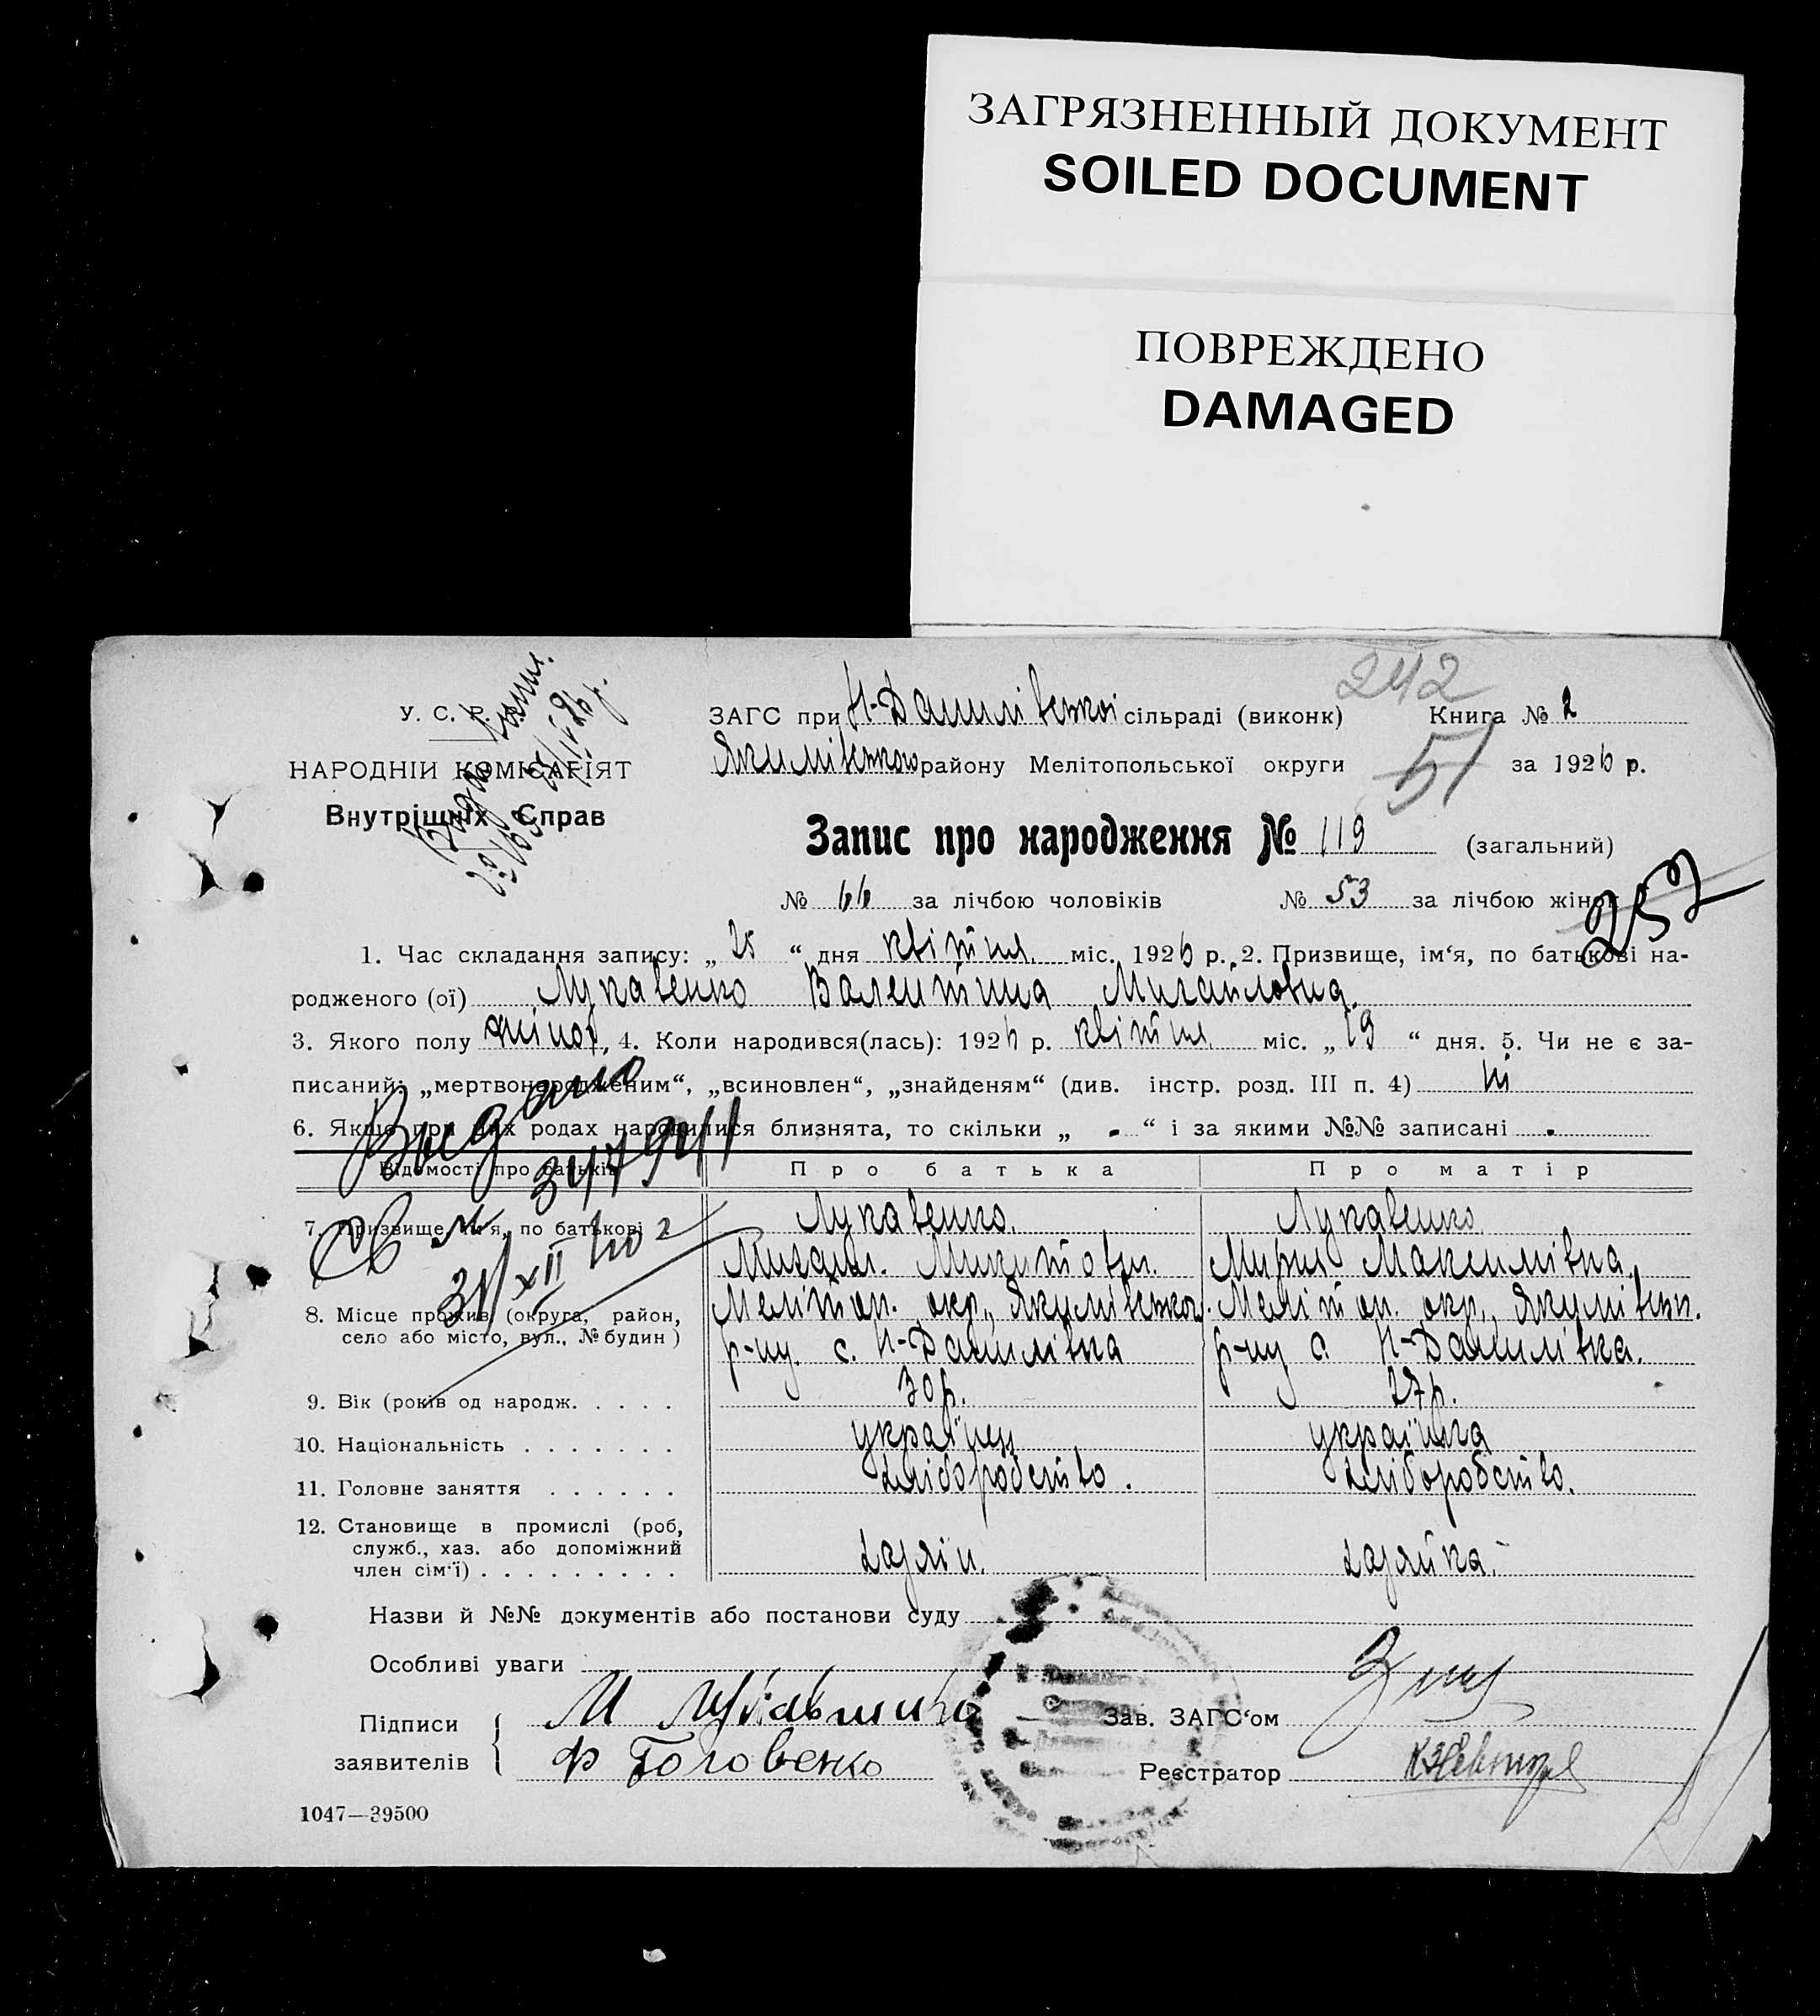 ЗАГРЯЗНЕННЫЙ ДОКУМЕНТ
SOILED DOCUMENT
ПОВРЕЖДЕНО
DAMAGED
242
У. С. Р. Р.
ЗАГС при Н-Данилівської сільраді (виконк) Книга № 2
НАРОДНІЙ КОМІСАРІЯТ
Якимівського району Мелітопольської округи 51 за 1926 р.
Внутрішніх Справ
Запис про народження № 119 (загальний)
№ 66 за лічбою чоловіків № 53 за лічбою жінок
257
1. Час складання запису: „ 25 “ дня квітня міс. 1926 р. 2. Призвище, ім‘я, по батькові на-
родженого (ої) Лукавенко Валентина Михайловна.
3. Якого полу жіноч, 4. Коли народився(лась): 1926 р. квітня міс. „ 19 “ дня. 5. Чи не є за-
писаний: „мертвонародженим“, „всиновлен“, „знайденям“ (див. інстр. розд. III п. 4) ні
6. Якщо при цих родах народилися близнята, то скільки „ - “ і за якими №№ записані -
Выдано
Св № 347941
31/XII 40 г
Відомості про батьків Про батька Про матір
7. Призвище, ім‘я, по батькові Лукавенко. Лукавенко.
Михаил. Микитович. Мария Максимівна.
8. Місце прожив. (округа, район, Меліттоп. окр., Якимівського Мелітоп. окр., Якимівськ.
село або місто, вул., № будин ) р-ну. с. Н-Данилівка р-ну с. Н-Данилівка.
9. Вік (років од народж. . . . . 30 р. 27 р.
10. Національність . . . . . . . українец українка
11. Головне заняття . . . . . . хліборобство. хліборобство.
12. Становище в промислі (роб,
служб., хаз. або допоміжний
член сім‘ї) . . . . . . . . . хазяїн. хазяйка.
Назви й №№ документів або постанови суду
Особливі уваги
Підписи М Лукавенко Зав. ЗАГС‘ом
заявителів Ф Головенко Реєстратор
1047—39500